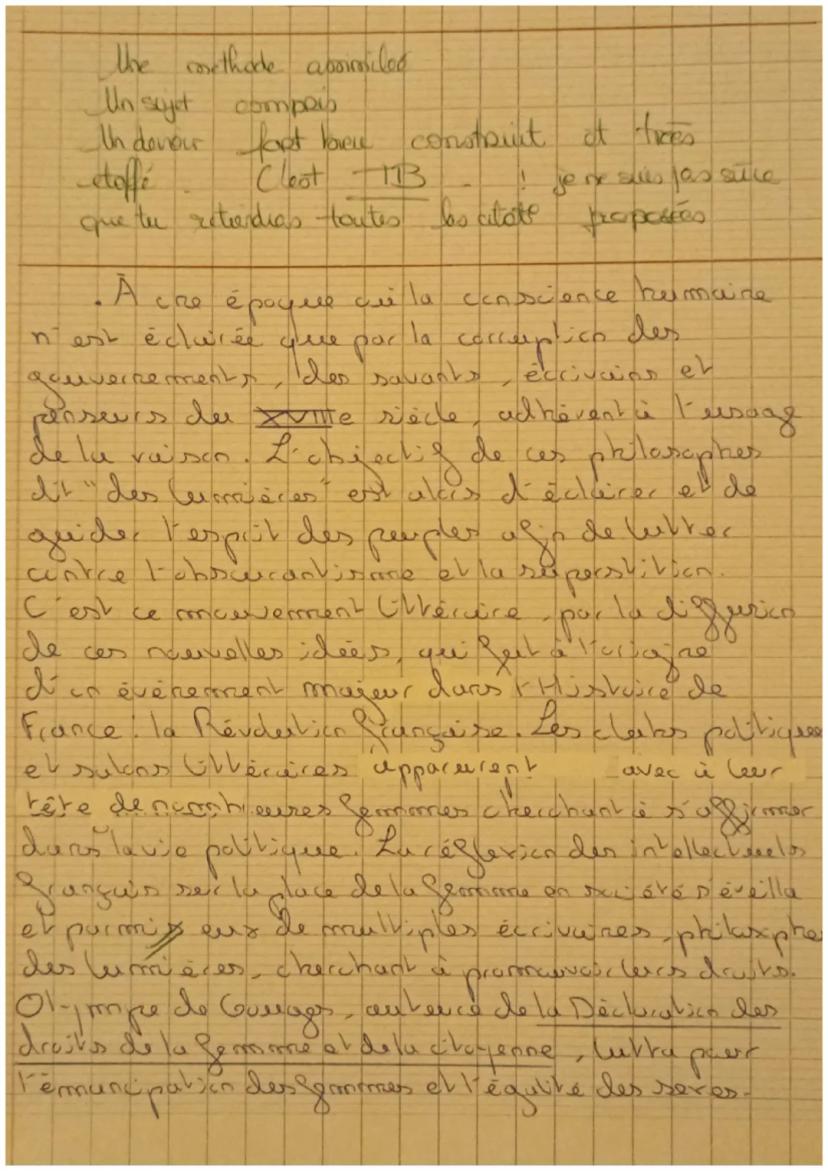 Une méthode assimilée
Un sujet compris
Un devoir fort bien construit et très
étoffé. C'est TTB ! je ne suis pas sûre
que tu retiendras toutes les citat° proposées
. À une époque où la conscience humaine
n'est éclairée que par la corruption des
gouvernements, des savants, écrivains et
penseurs du XVIIIe siècle, adhèrent à l'usage
de la raison. L'objectif de ces philosophes
dit "des lumières" est alors d'éclairer et de
guider l'esprit des peuples afin de lutter
contre l'obscurantisme et la superstition.
C'est ce mouvement littéraire, par la diffusion
de ces nouvelles idées, qui fut à l'origine
d'un événement majeur dans l'Histoire de
France : la Révolution française. Les clubs politiques
et salons littéraires apparurent avec à leur
tête de nombreuses femmes cherchant à s'affirmer
dans la vie politique. La réflexion des intellectuels
français sur la place de la femme en société s'éveilla
et parmis eux de multiples écrivaines, philosophe
des lumières, cherchant à promouvoir leurs droits.
Olympe de Gouges, auteure de la Déclaration des
droits de la femme et de la citoyenne, lutta pour
l'émancipation des femmes et l'égalité des sexes.